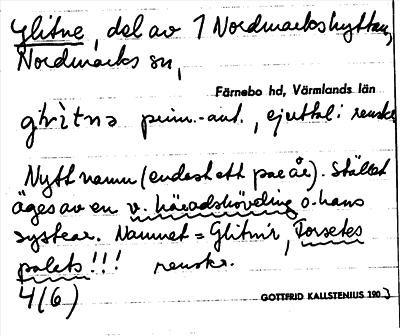 Glitne, del av 1 Nordmarkshyttan,
Nordmarks sn,
Färnebo hd, Värmlands län
prim.-ant., ej uttal i renskr.
Nytt namn (endast ett par år). Stället
äges av en v. häradshövding o. hans
systrar. Namnet = Glitnir, Forsetes
palats!!! renskr.
4(6)
GOTTFRID KALLSTENIUS 190